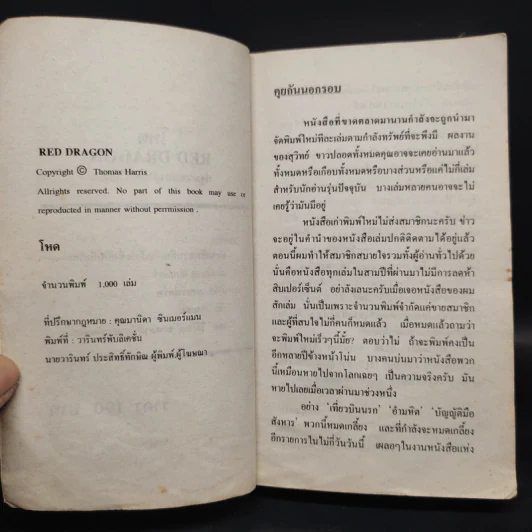 RED DRAGON
Copyright © Thomas Harris
Allrights reserved. No part of this book may use or
reproduced in manner without perrmission .
โหด
จำนวนพิมพ์ 1,000 เล่ม
ที่ปรึกษากฎหมาย : คุณมานิดา ซินเมอร์แมน
พิมพ์ที่ : วารินทร์พับลิเคชั่น
นายวารินทร์ ประสิทธิ์ทักษิณ ผู้พิมพ์,ผู้โฆษณา
คุยกันนอกรอบ
หนังสือที่ขาดตลาดมานานกำลังจะถูกนำมา
จัดพิมพ์ใหม่ทีละเล่มตามกำลังทรัพย์ที่จะพึงมี ผลงาน
ของสุวิทย์ ขาวปลอดทั้งหมดคุณอาจจะเคยอ่านมาแล้ว
ทั้งหมดหรือเกือบทั้งหมดหรือบางส่วนหรือแค่ไม่กี่เล่ม
สำหรับนักอ่านรุ่นปัจจุบัน บางเล่มหลายคนอาจจะไม่
เคยรู้ว่ามันมีอยู่
หนังสือเก่าพิมพ์ใหม่ไม่ส่งสมาชิกนะครับ ข่าว
จะอยู่ในคำนำของหนังสือเล่มปกติติดตามได้อยู่แล้ว
ตอนนี้ผมทำให้สมาชิกสบายใจรวมทั้งผู้อ่านทั่วไปด้วย
นั่นคือหนังสือทุกเล่มในสามปีที่ผ่านมาไม่มีการลดห้า
สิบเปอร์เซ็นต์ อย่าลังเลนะครับเมื่อเจอหนังสือของผม
สักเล่ม นั่นเป็นเพราะจำนวนพิมพ์จำกัดแค่ขายสมาชิก
และผู้ที่สนใจไม่กี่คนก็หมดแล้ว เมื่อหมดแล้วถามว่า
จะพิมพ์ใหม่เร็วๆนี้มั้ย? ตอบว่าไม่ ถ้าจะพิมพ์คงเป็น
อีกหลายปีข้างหน้าโน่น บางคนบ่นมาว่าหนังสือพวก
นี้เหมือนหายไปจากโลกเฉยๆ เป็นความจริงครับ มัน
หายไปเลยเมื่อเวลาผ่านมาช่วงหนึ่ง
อย่าง 'เที่ยวบินนรก' 'อำมหิต' 'บัญญัติมือ
สังหาร' พวกนี้หมดเกลี้ยง และที่กำลังจะหมดเกลี้ยง
อีกรายการในไม่กี่วันวันนี้ เผลอๆในงานหนังสือแห่ง